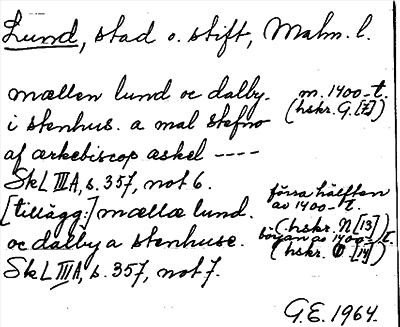 Lund, stad o. stift, Malm. l.
mællen lund oc dalby. m. 1400-t.
i stenhus. a mal stefno (hskr. G. [7])
af ærkebiscop æskel ----
SkL III A, s. 357, not 6.
första hälften
av 1400-t.
[tillägg:] mællæ lund. (hskr. N [13])
oc dalby a stenhuse. början av 1400-t.
SkL III A, s. 357, not 7. (hskr. O [14])
G.E. 1964.